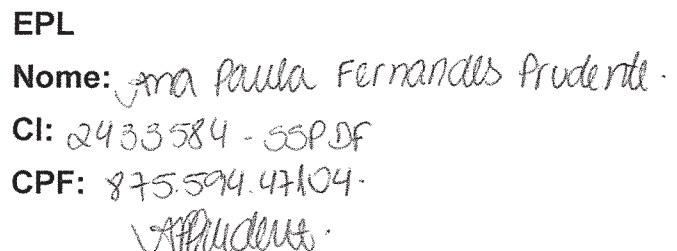 EPL
Nome: Ana Paula Fernandes Prudente.
CI: 2433584 - SSPDF
CPF: 875.594.47104.
APrudente.